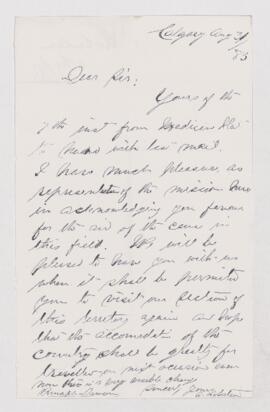 Calgary Aug 31
/83
Dear Sir:
Yours of the
7 the inst from Medicine Hat
to hand with last mail.
I have much pleasure, as
representative of the mission here
in acknowledging your favour
for the aid of the cause in
this field. We will be
pleased to have you with us
when it shall be permitted
you to visit our section of
this territory again and hope
that the accomodation of the
country shall be greatly for
travellers on next occasion
now this is a very